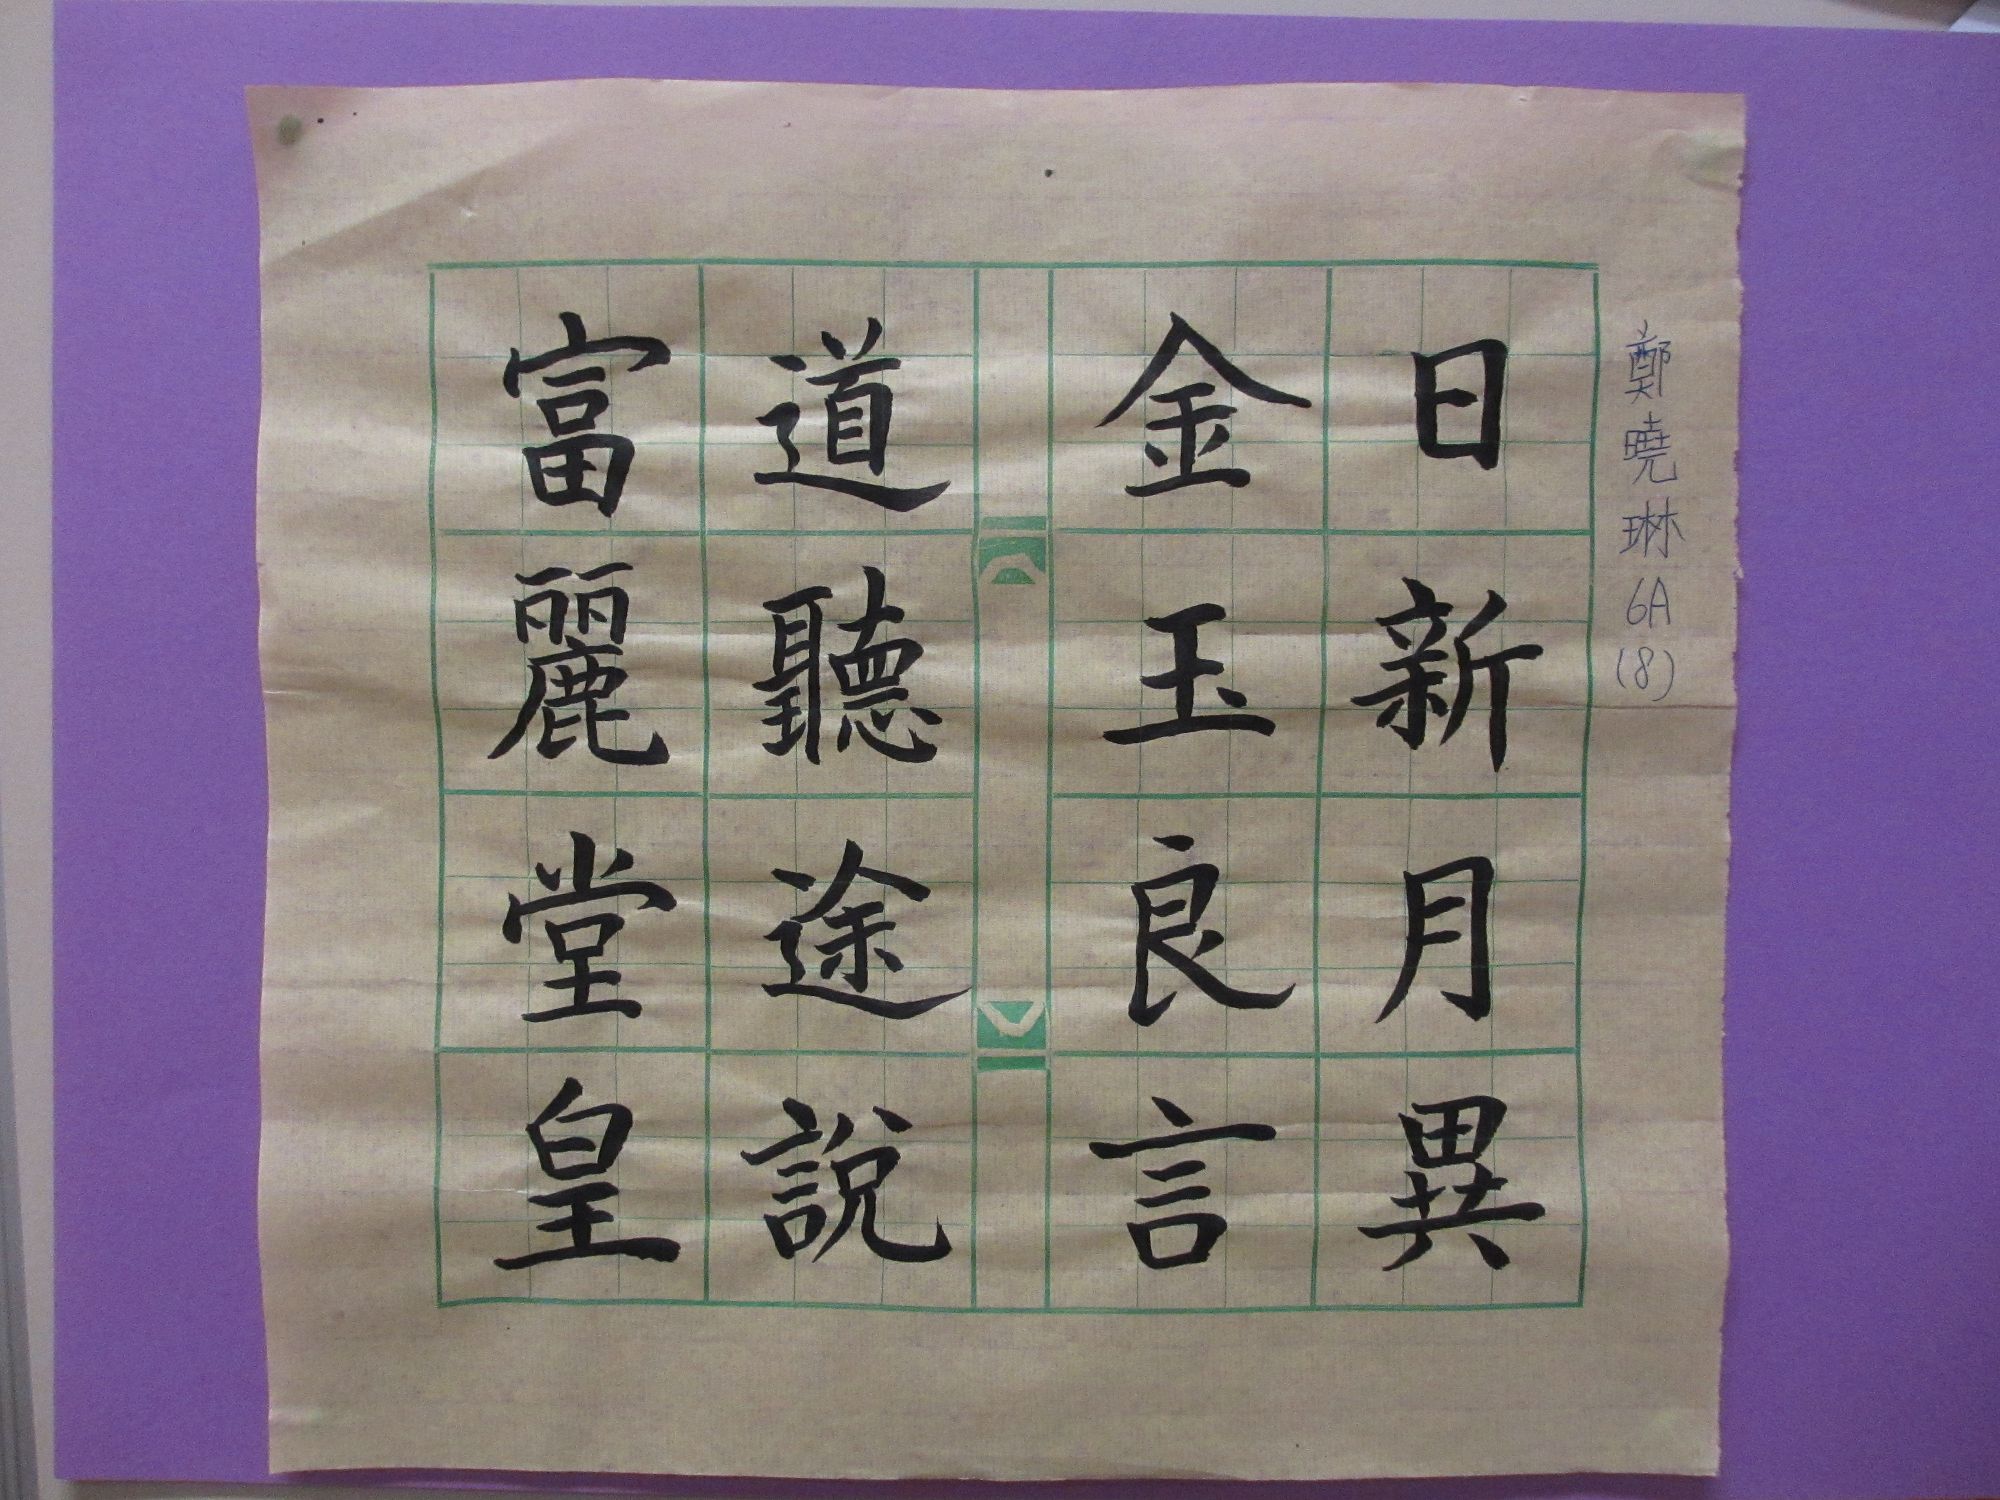 鄭曉琳 6A (8)
日新月異
金玉良言
道聽途說
富麗堂皇